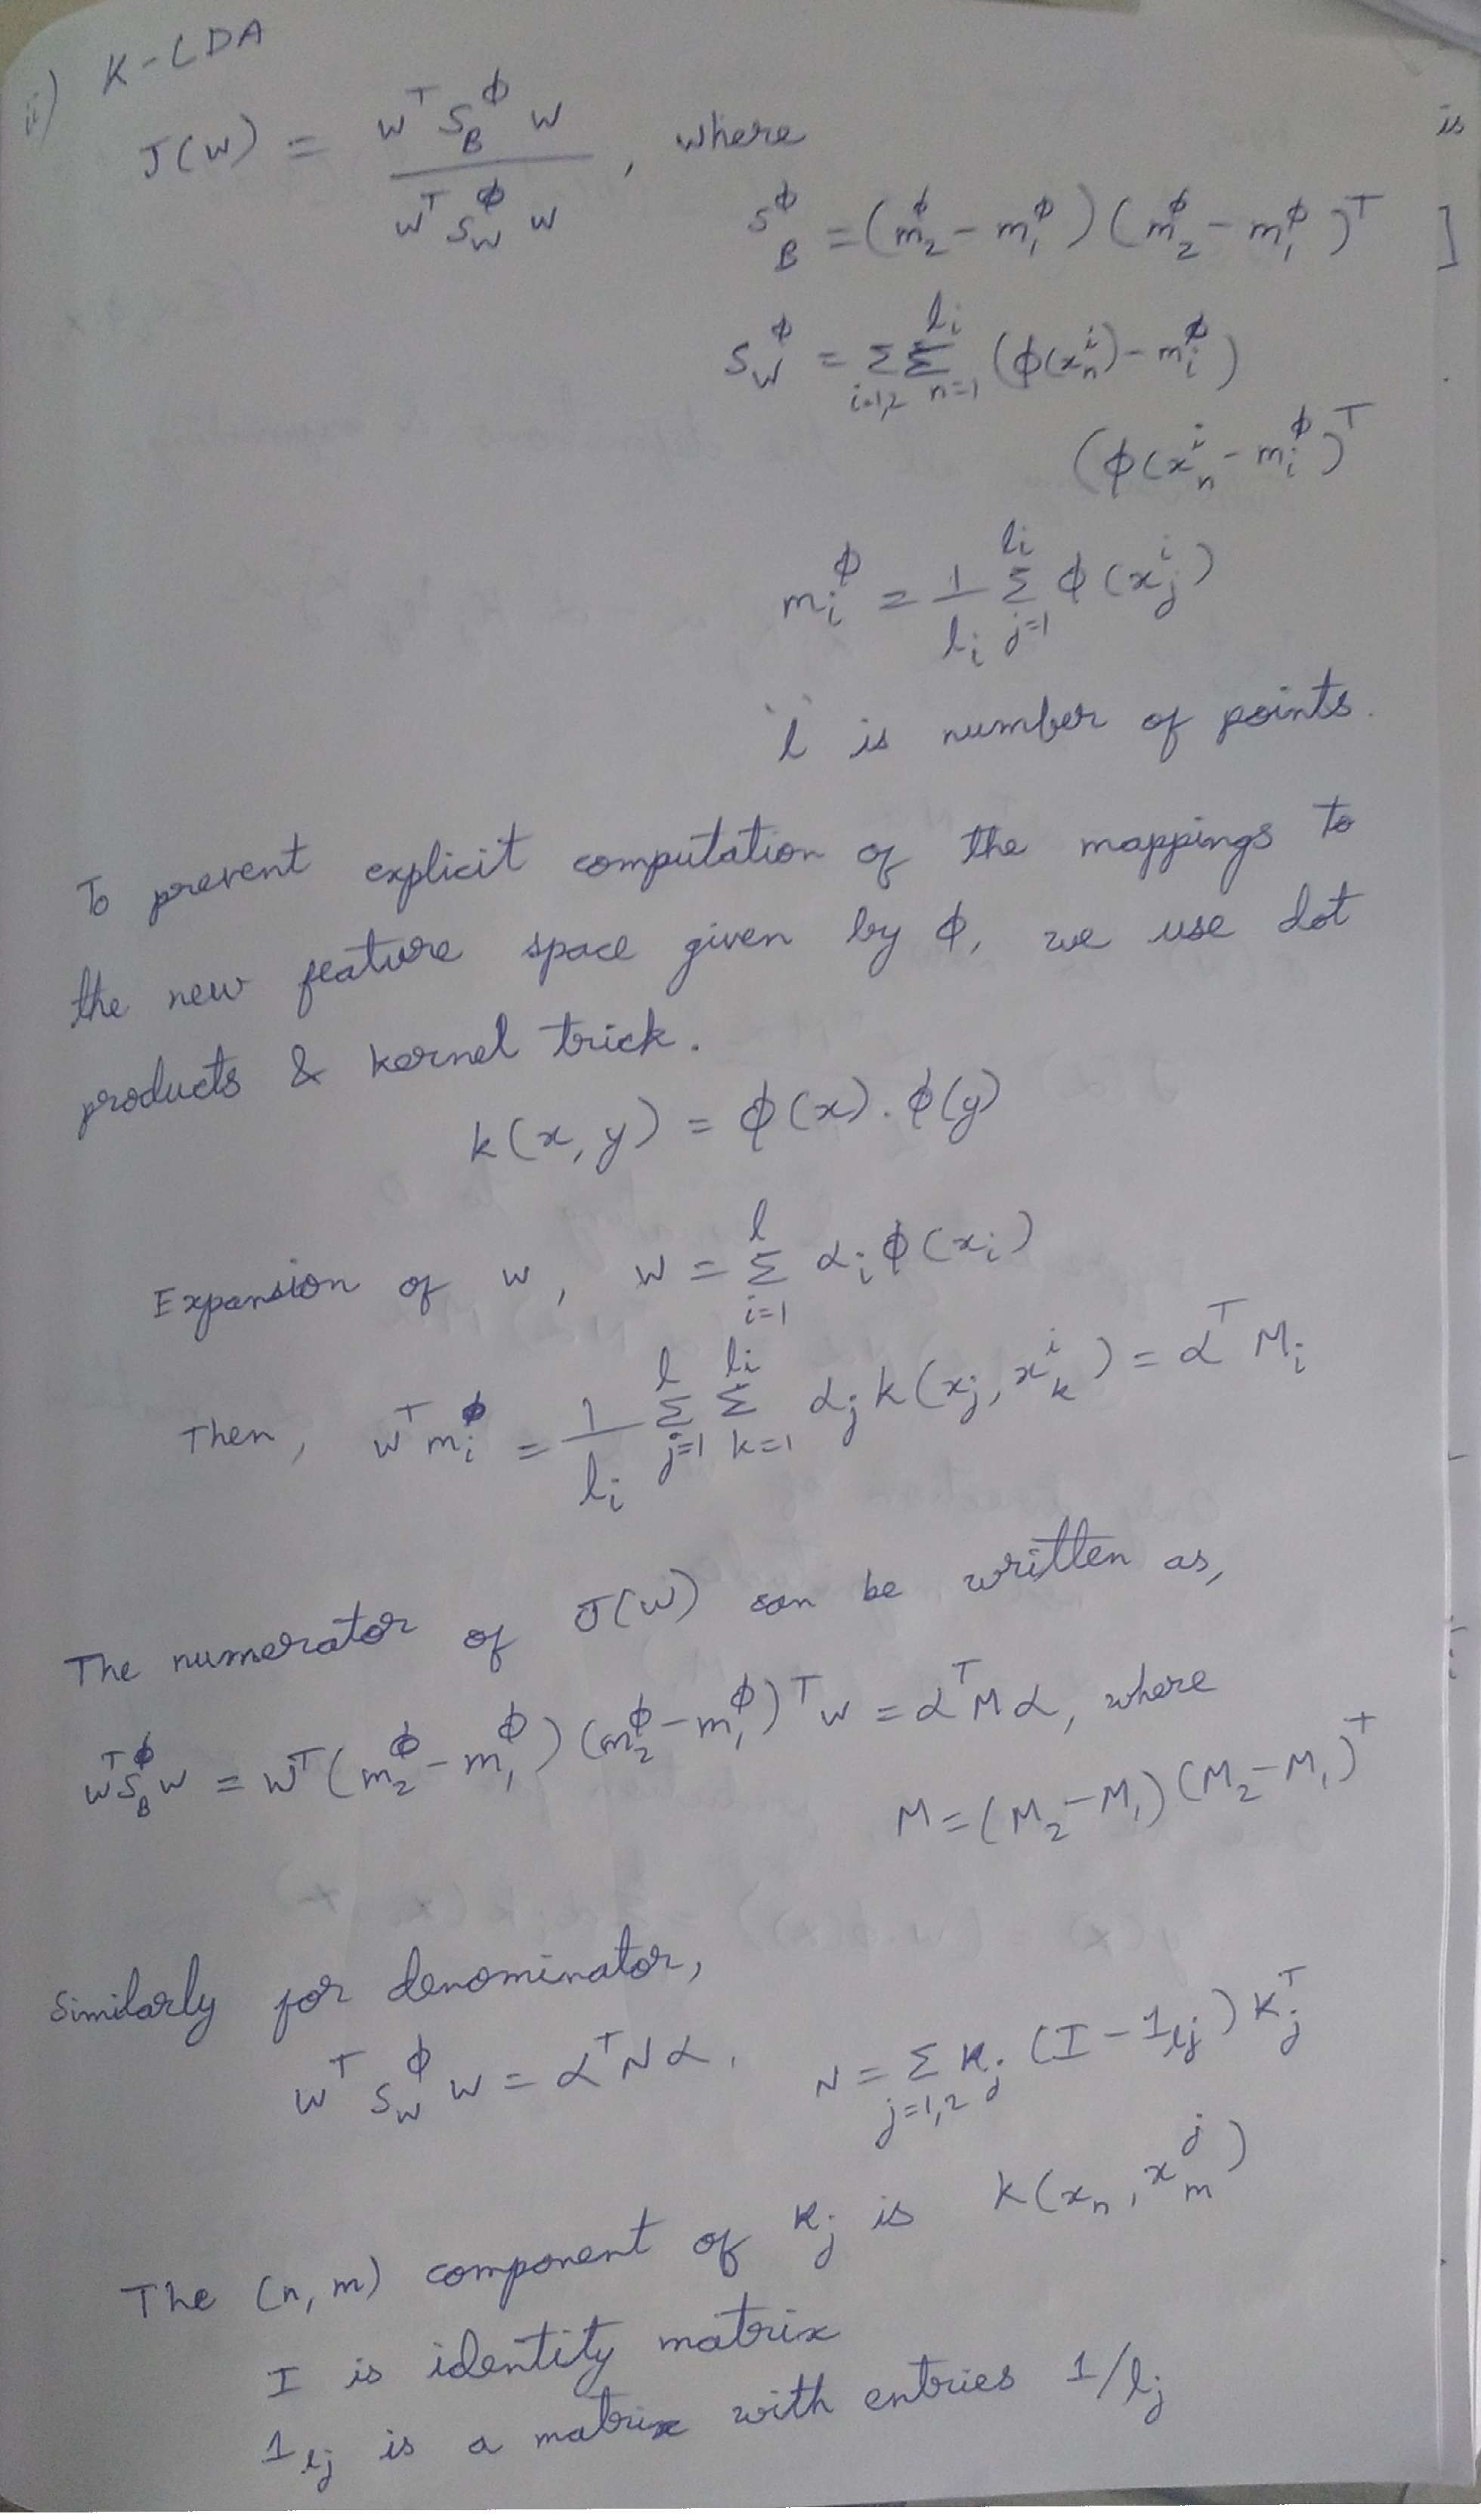 ii) K-LDA
J(w) = w^T S_B^ϕ w / w^T S_W^ϕ w , where
is
S_B^ϕ = (m_2^ϕ - m_1^ϕ) (m_2^ϕ - m_1^ϕ)^T ]
S_W^ϕ = Σ_{i=1,2} Σ_{n=1}^{l_i} (ϕ(x_n^i) - m_i^ϕ)
(ϕ(x_n^i - m_i^ϕ)^T
m_i^ϕ = 1/l_i Σ_{j=1}^{l_i} ϕ(x_j^i)
`l is number of points.
To prevent explicit computation of the mappings to
the new feature space given by ϕ, we use dot
products & kernel trick.
k(x, y) = ϕ(x) . ϕ(y)
Expansion of w, w = Σ_{i=1}^{l} α_i ϕ(x_i)
Then, w^T m_i^ϕ = 1/l_i Σ_{j=1}^{l} Σ_{k=1}^{l_i} α_j k(x_j, x_k^i) = α^T M_i
The numerator of J(w) can be written as,
w^T S_B^ϕ w = w^T (m_2^ϕ - m_1^ϕ) (m_2^ϕ - m_1^ϕ)^T w = α^T M α, where
M = (M_2 - M_1) (M_2 - M_1)^T
Similarly for denominator,
w^T S_W^ϕ w = α^T N α. N = Σ_{j=1,2} K_j (I - 1_{lj}) K_j^T
The (n, m) component of K_j is k(x_n, x_m^j)
I is identity matrix
1_{lj} is a matrix with entries 1/l_j